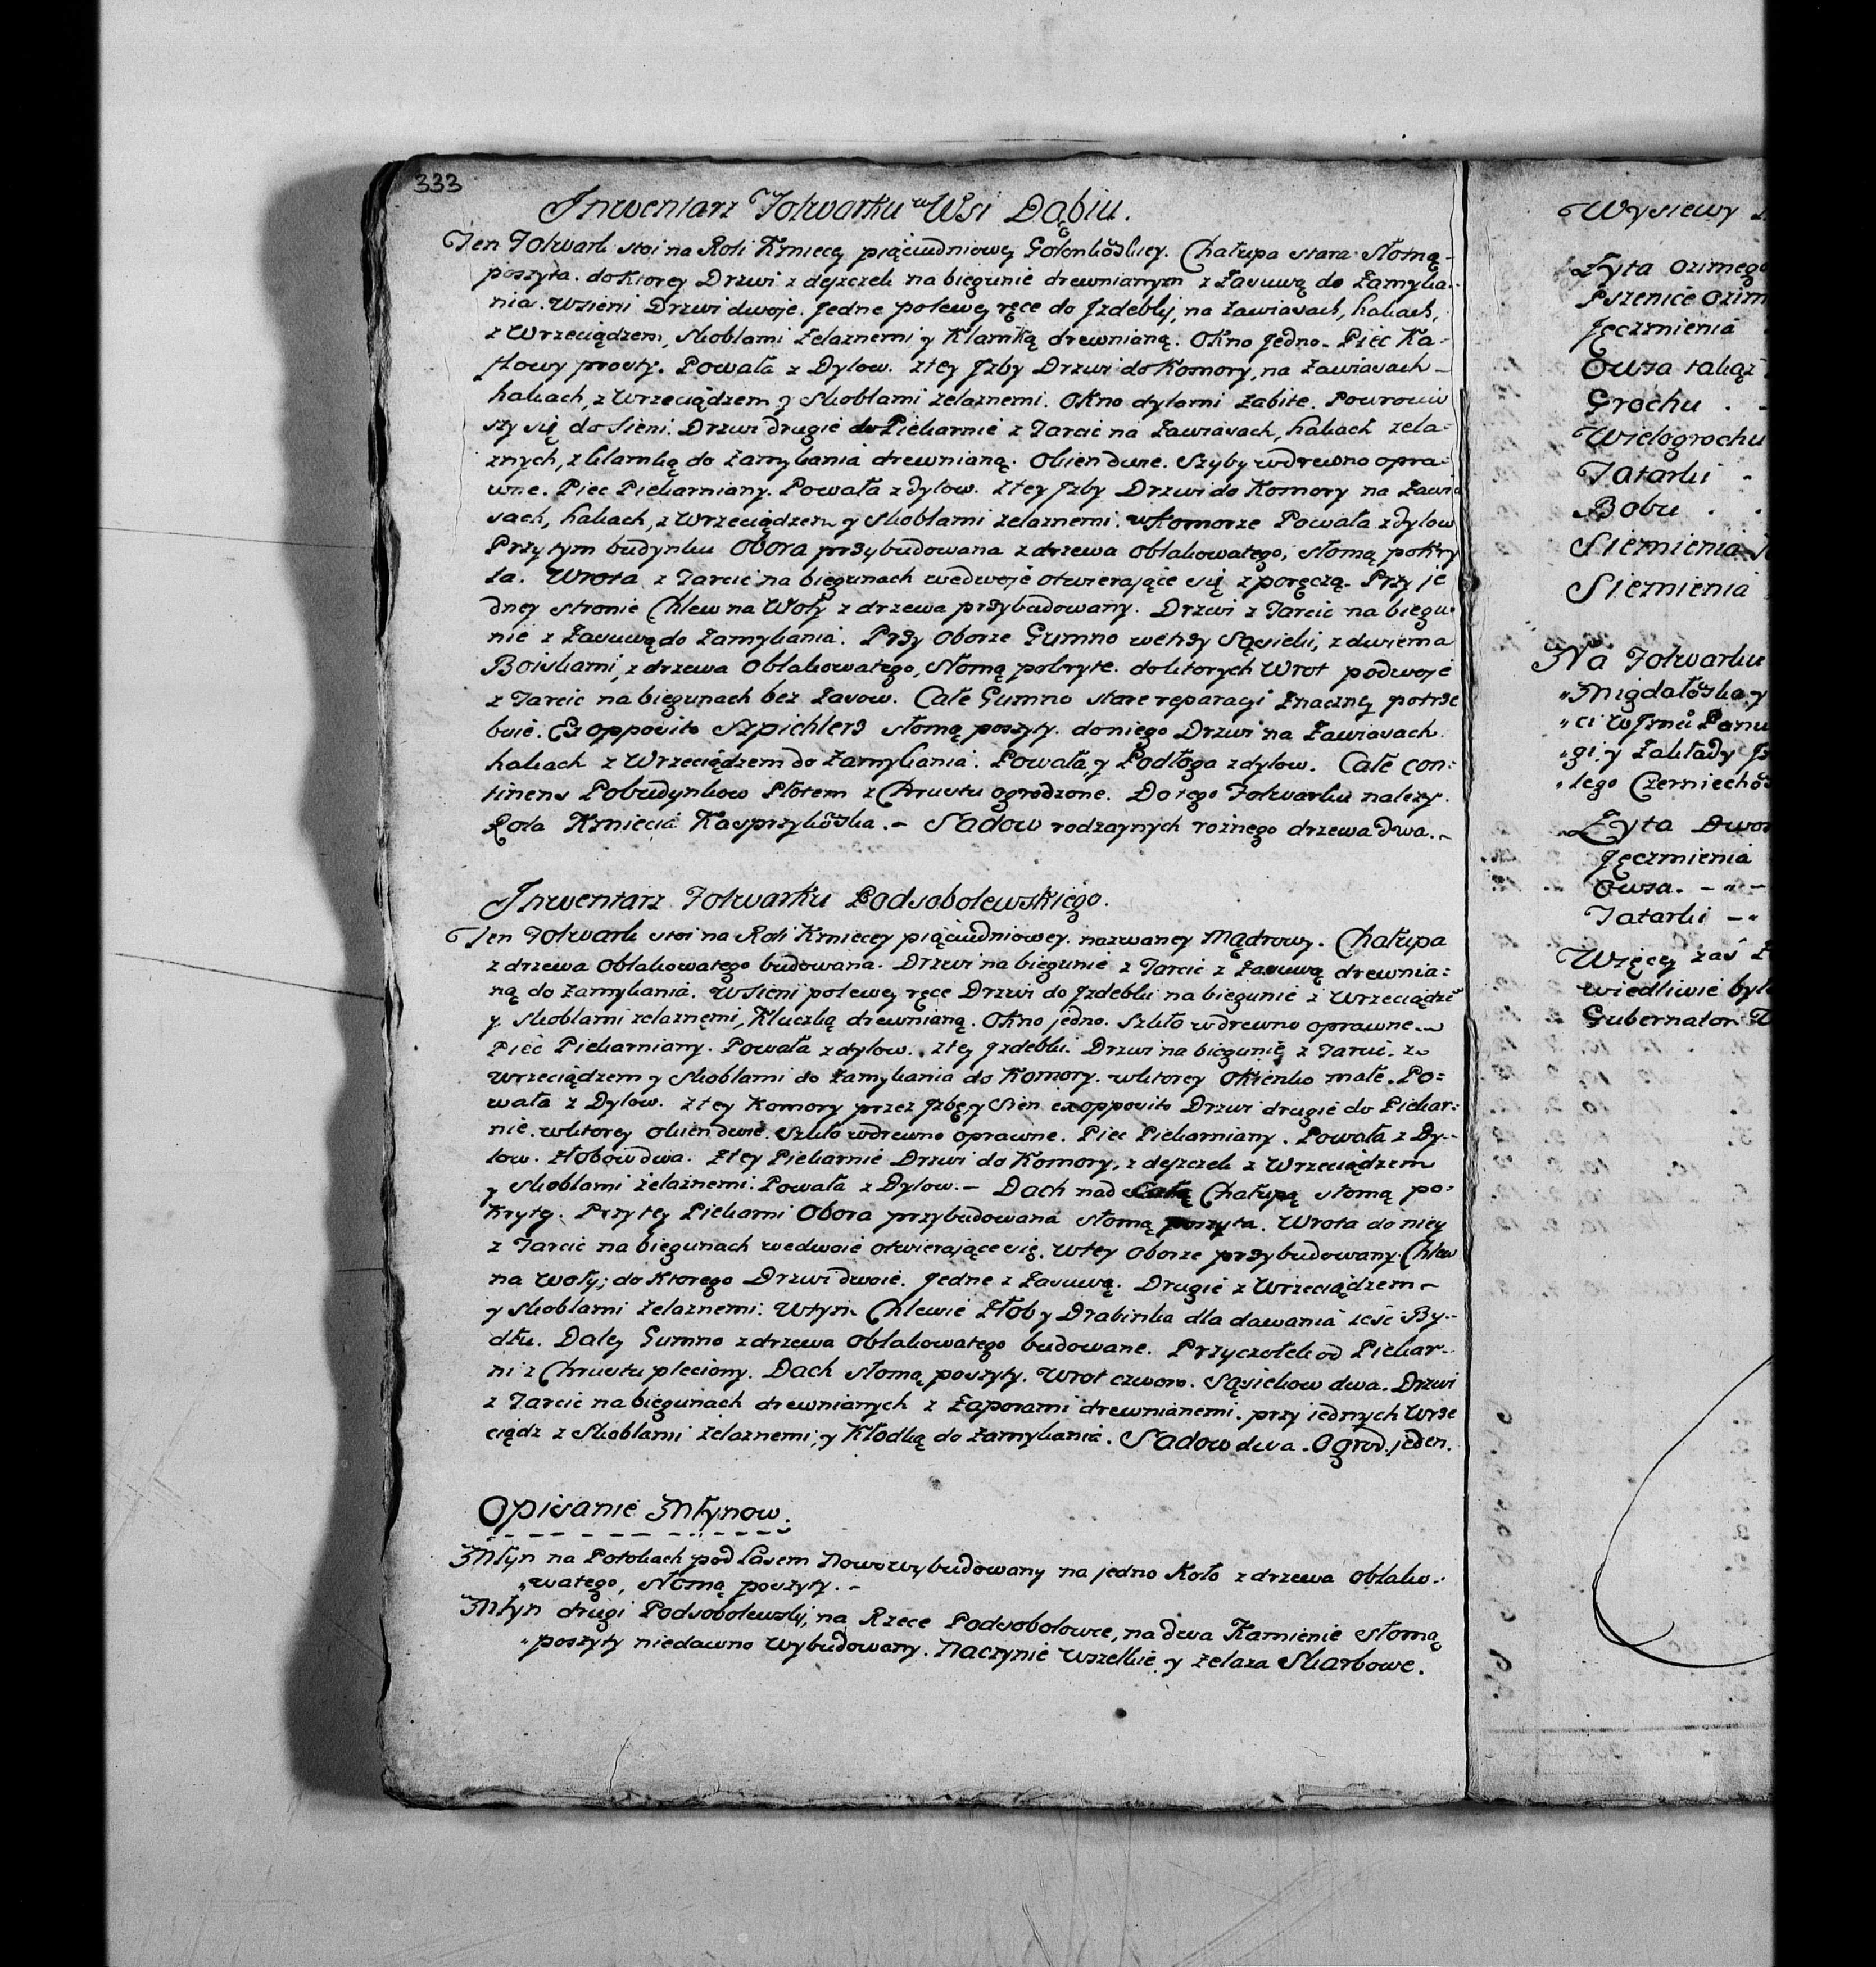 333
Inwentarz Folwarku w Wsi Dąbiu.
Ten Folwark stoi na Roli Kmiecey pięciudniowey Gołomboskiey. Chałupa stara Słomą
poszyta. do Ktorey Drzwi z deszczek na biegunie drewnianym z Zasuwą do Zamyka-
nia. wsieni Drzwi dwoje. Jedne polewey ręce do Jzdebki, na Zawiasach, hakach,
z Wrzeciądzem, Skoblami Zelaznemi y Klamką drewnianą. Okno Jedno. Piec Ka-
flowy prosty. Powała z Dylow. z tey Jzby Drzwi do Komory, na Zawiasach
hakach, z Wrzeciądzem y Skoblami zelaznemi. Okno dylami Zabite. Powrociw
szy się do Sieni. Drzwi drugie do Piekarnie z Tarcic na Zawiasach, hakach zela=
znych, z klamką do Zamykania drewnianą. Okien dwie. Szyby w drewno opra-
wne. Piec Piekarniany. Powała z dylow. z tey Jzby Drzwi do Komory na Zawia
sach, hakach, z Wrzeciądzem y Skoblami zelaznemi. w Komorze Powała z dylow
Przy tym budynku Obora przybudowana z drzewa obłakowatego, słomą pokry
ta. Wrota z Tarcic na biegunach wedwoje otwierające się z poręczą. Przy je
dney stronie Chlew na Woły z drzewa przybudowany. Drzwi z Tarcic na biegu-
nie z Zasuwą do Zamykania. Przy Oborze Gumno wetrzy Sąsieki, z dwiema
Boiskami, z drzewa Obłakowatego, Słomą pokryte. doktorych Wrot podwoje
z Tarcic na biegunach bez Zasow. Całe Gumno stare reparacji Znaczney potrze
buie. Ex opposito Szpichlerz słomą poszyty. do niego Drzwi na Zawiasach.
hakach z Wrzeciądzem do Zamykania. Powała y Podłoga z dylow. Całe con=
tinens Pobudynkow Płotem z Chrustu ogrodzone. Do tego Folwarku nalezy.
Rola Kmiecia Kasprzykoska.- Sadow rodzaynych roznego drzewa dwa.-
Inwentarz Folwarku Podsobolewskiego.
Ten Folwark stoi na Roli Kmiecey pięciudniowey. nazwaney Mądrowy. Chałupa
z drzewa Obłakowatego budowana. Drzwi na biegunie z Tarcic z Zasuwą drewnia=
ną do zamykania. Wsieni polewey ręce Drzwi do Jzdebki na biegunie z Wrzeciądzē
y Skoblami zelaznemi, Kluczką drewnianą. Okno jedno. Szkło w drewno oprawne.
Piec Piekarniany. Powała z dylow. z tey Jzdebki. Drzwi na biegunie z Tarcic. z
wrzeciądzem y Skoblami do Zamykania do Komory. wktorey Okienko małe. Po=
wała z Dylow. z tey Komory przez Jzbę y Sien ex opposito Drzwi drugie do Piekar=
nie. wktorey okien dwie. Szkło w drewno oprawne. Piec Piekarniany. Powała z Dy-
low. Złobow dwa. Z tey Piekarnie Drzwi do Komory, z deszczek z Wrzeciądzem
y Skoblami zelaznemi. Powała z Dylow.- Dach nad Całą Chałupą słomą po=
kryty. Przy tey Piekarni Obora przybudowana słomą poszyta. Wrota do niey
z Tarcic na biegunach wedwoie otwierające się. w tey Oborze przybudowany Chlew
na woły; do Ktorego Drzwi dwoie. Jedne z Zasuwą. Drugie z Wrzeciądzem
y Skoblami Zelaznemi. Wtym Chlewie Złob y Drabinka dla dawania ieść By-
dłu. Daley Gumno z drzewa Obłakowatego budowane. Przyczołek od Piekar-
ni z Chrustu pleciony. Dach słomą poszyty. Wrot czworo. Sąsiekow dwa. Drzwi
z Tarcic na biegunach drewnianych z Zaporami drewnianemi. przy iednych Wrze
ciądz z Skoblami Zelaznemi, y Kłodką do Zamykania. Sadow dwa. Ogrod. jeden.
Opisanie Młynow.
Młyn na Potokach pod Lasem Nowowybudowany na jedno Koło z drzewa Obłako-
"watego, Słomą poszyty.-
Młyn drugi Podsobolewski, na Rzece Podsobolowce, na dwa Kamienie słomą
"poszyty niedawno wybudowany. Naczynie wszelkie y zelaza Skarbowe.
Wysiewy
Zyta Ozimego
Pszenice Ozim
Jęczmienia
Owsa takąż
Grochu . -
Wielogrochu
Tatarki -
Bobu . .
Siemienia
Siemienia
Na Folwarku
"Migdałoska y
"ci WJmci Panu
"gi y Zakłady
"tego Czerniechos
Zyta Dwor
Jęczmienia
Owsa. - " -
Tatarki - "
Więcey zaś
wiedliwie był
Gubernator